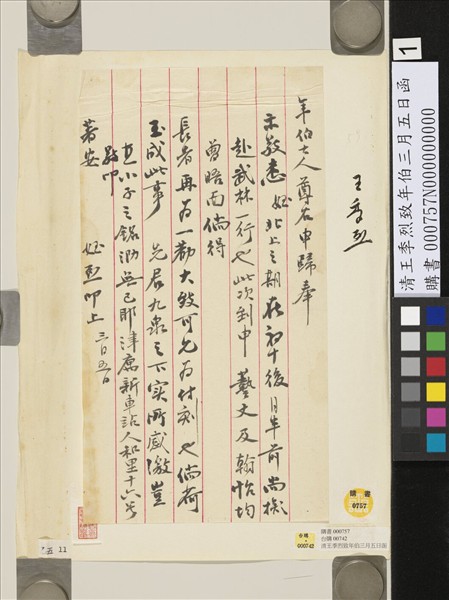 年伯大人尊右申歸奉
示敬悉姪北上之期在初十後月半前尚擬
赴武林一行也此次到申藝文及翰怡均
曾晤面倘得
長者再為一勸大致可允為付刻也倘荷
玉成此事先君九泉之下实所感激豈
小子之銘泐無已耶津廬新車站人和里十六号
敬叩
著安
姪烈叩上 三月五日
王季烈
1
清王季烈致年伯三月五日函
購書 000757N000000000
購書
0757
購書 000757
台購 00742
清王季烈致年伯三月五日函
台購
000742
五 11